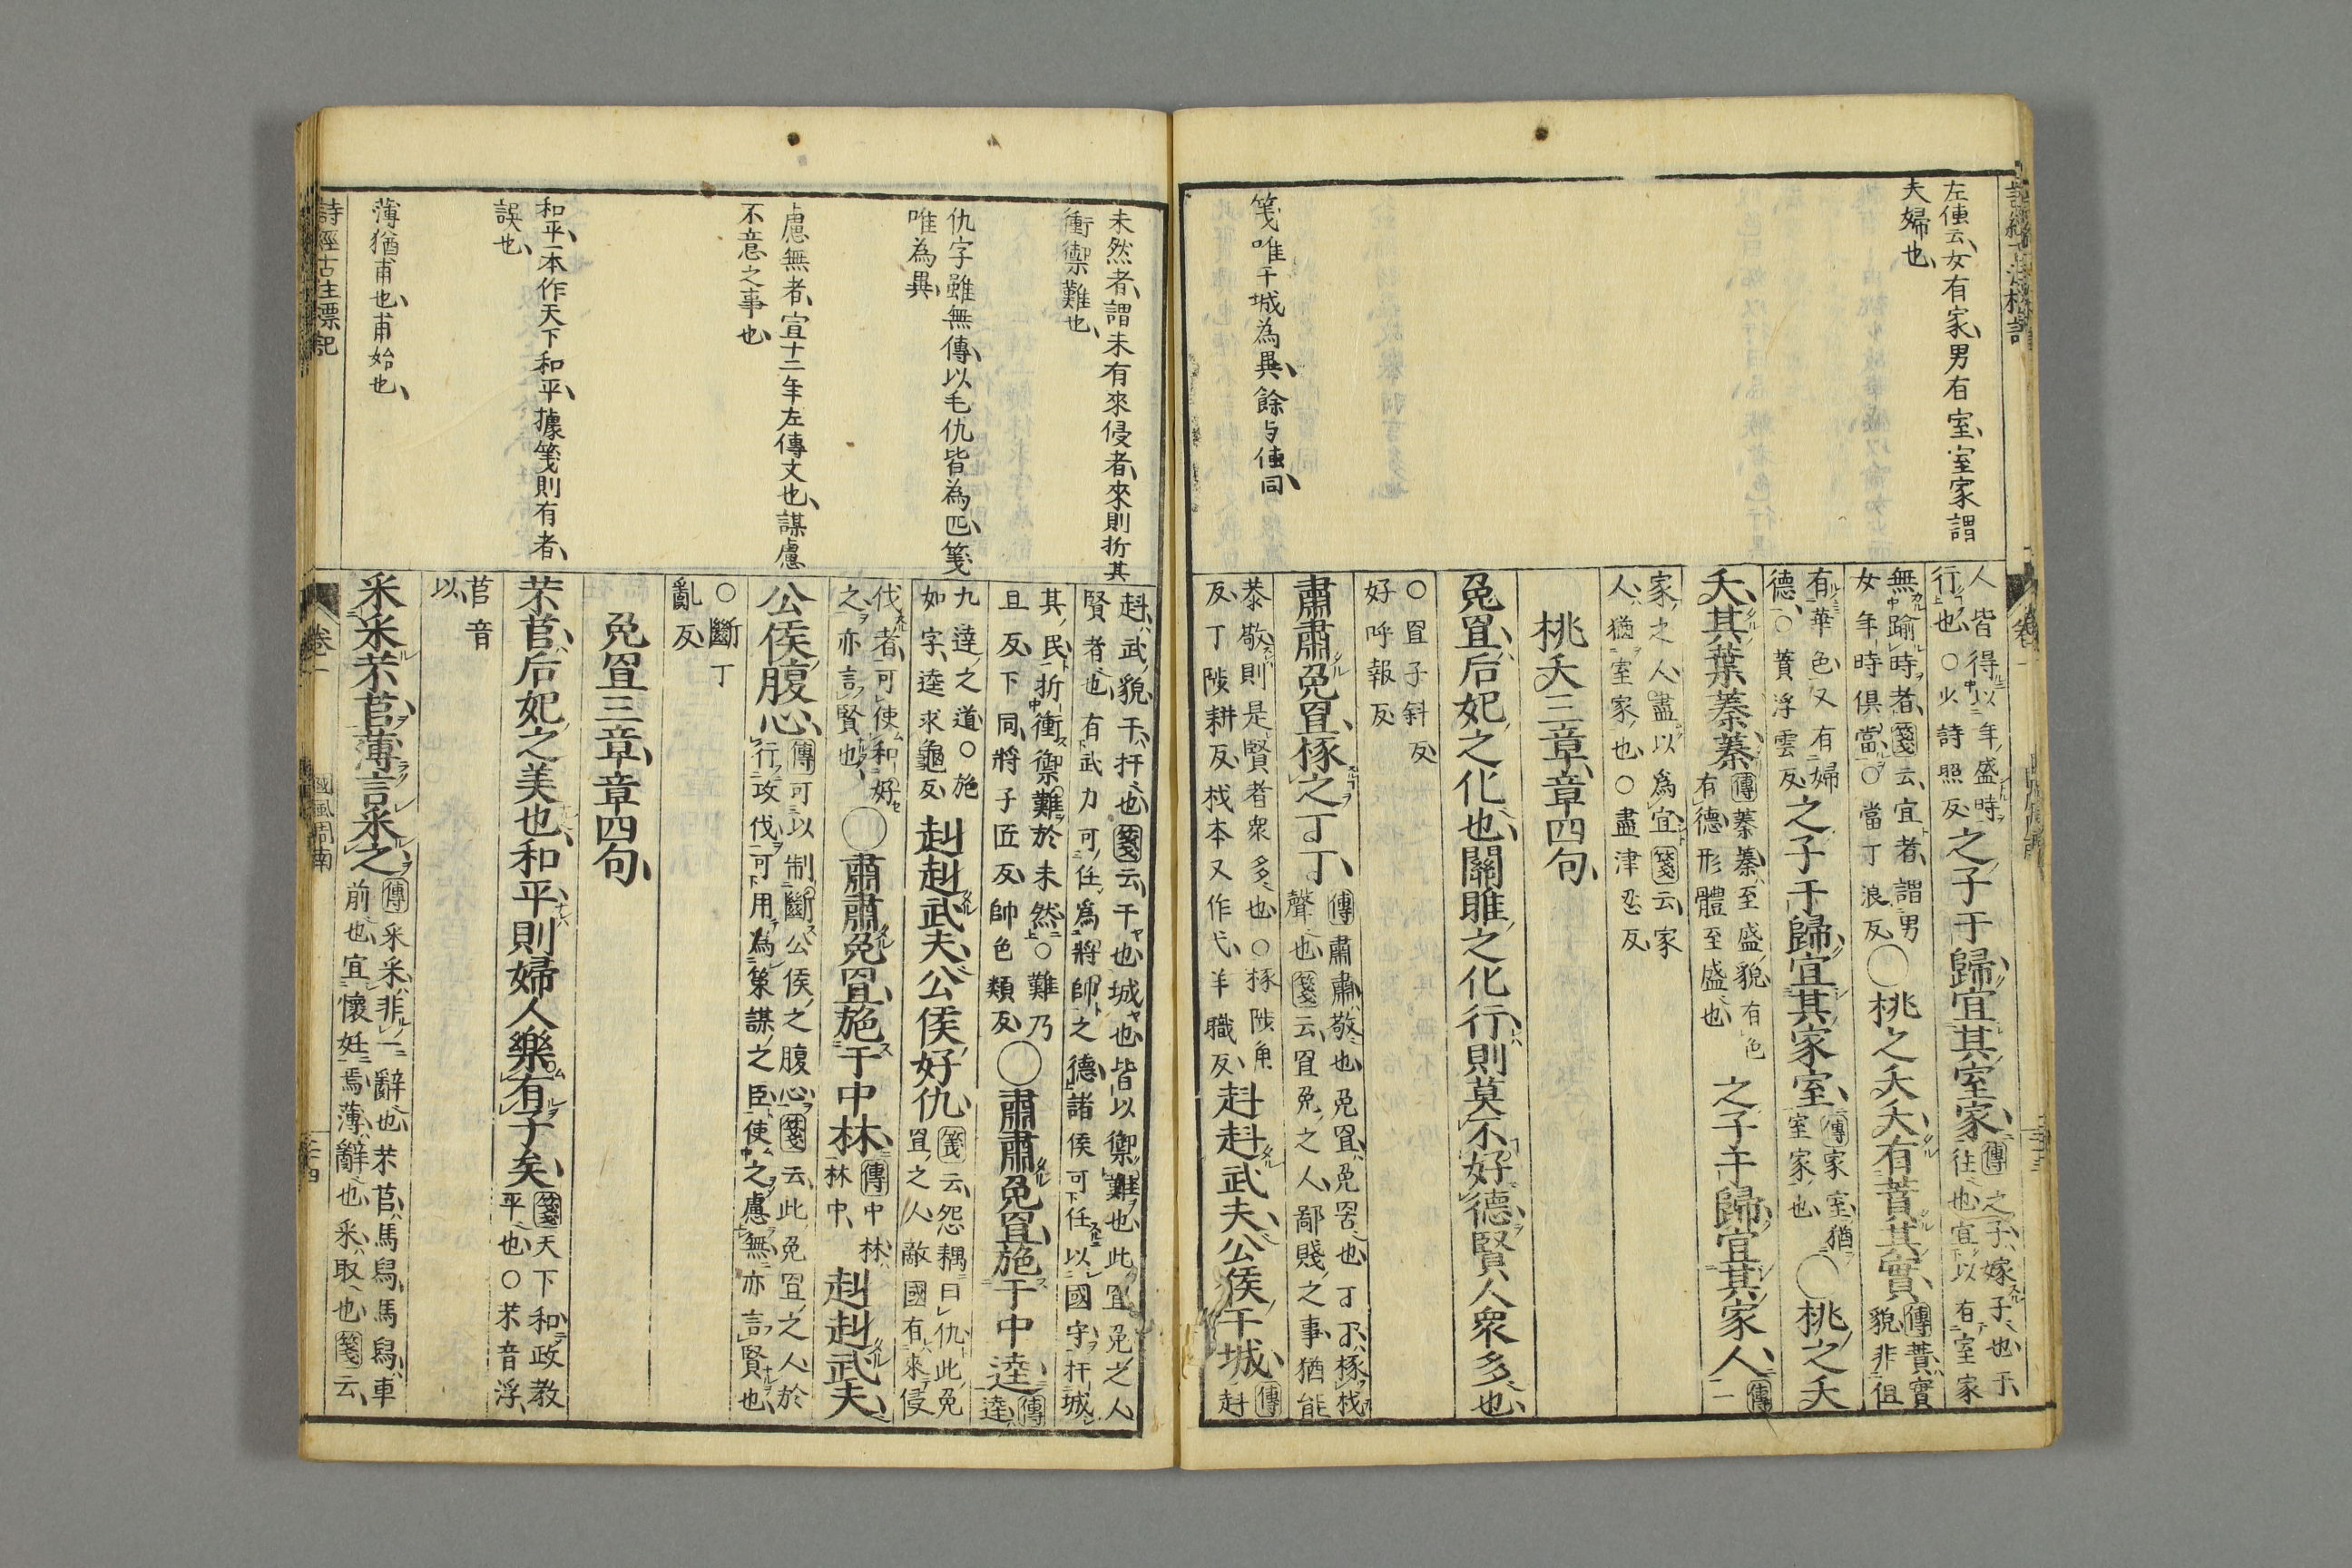 左傳云、女有家、男有室、室家謂
夫婦也、
箋唯干城為異、餘与傳同、
人皆得以年盛時之子于歸、宜其室家、傳之子、嫁子也、于、
行也、○少詩照反、往也、宜以有室家
無踰時者、箋云、宜者、謂男
女年時俱當、○當丁浪反、○桃之夭夭、有蕡其實、傳蕡、實
貌、非徂
有華色、又有婦
德、○蕡浮雲反、之子于歸、宜其家室、傳家室、猶
室家也、○桃之夭
夭、其葉蓁蓁、傳蓁蓁、至盛貌、有色
有德、形體至盛也、之子于歸、宜其家人、傳一
家之人、盡以為宜、箋云、家
人、猶室家也、○盡津忍反、
桃夭三章、章四句、
兔罝、后妃之化也、關雎之化行、則莫不好德、賢人衆多也、
○罝子斜反、
好呼報反、
肅肅兔罝、椓之丁丁、傳肅肅、敬也、兔罝、兔罟也、丁丁、椓杙
聲也、箋云、罝兔之人、鄙賤之事、猶能
恭敬、則是賢者衆多也、○椓陟角
反、丁陟耕反、杙本又作弋、羊職反、赳赳武夫、公侯干城、傳赳
未然者、謂未有來侵者、來則折其
衝禦難也、
仇字雖無傳、以毛仇皆為匹、箋
唯為異、
慮無者、宣十二年左傳文也、謀慮
不意之事也、
和平、一本作天下和平、據箋則有者、
誤也、
薄猶甫也、甫始也、
赳、武貌、干、扞也、箋云、干也城也、皆以禦難也、此罝兔之人
賢者也、有武力、可任為將帥之德、諸侯可任以國守、扞城
其民、折衝禦難於未然、○難乃
旦反、下同、將子匠反、帥色類反、○肅肅兔罝、施于中逵、傳逵、
九達之道、○施
如字、逵求龜反、赳赳武夫、公侯好仇、箋云、怨耦曰仇、此兔
罝之人、敵國有來侵
伐者、可使和好
之、亦言賢也、○肅肅兔罝、施于中林、傳中林、
林中、赳赳武夫、
公侯腹心、傳可以制斷公侯之腹心、箋云、此兔罝之人、於
行攻伐、可用為策謀之臣、使之慮無、亦言賢也、
○斷丁
亂反、
兔罝三章、章四句、
芣苢、后妃之美也、和平、則婦人樂有子矣、箋天下和、政教
平也、○芣音浮、
苢音
以、
采采芣苢、薄言采之、傳采采、非一辭也、芣苢、馬舄、馬舄、車
前也、宜懷妊焉、薄、辭也、采、取也、箋云、
詩經古注標記
卷一
國風周南